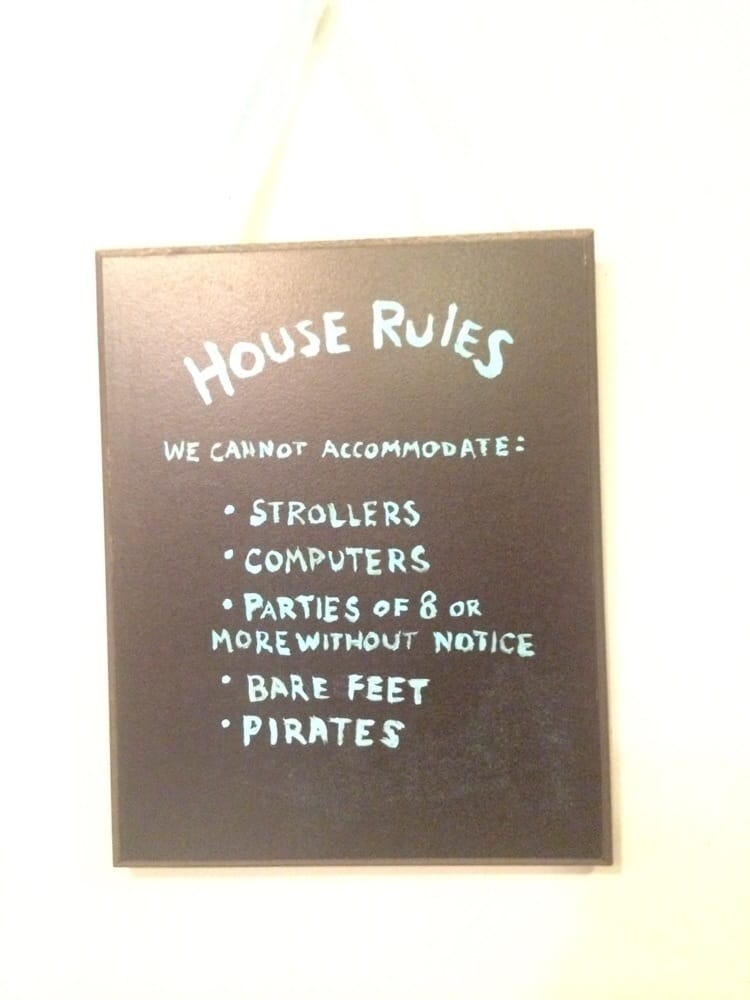 HOUSE RULES
WE CANNOT ACCOMMODATE:
• STROLLERS
• COMPUTERS
• PARTIES OF 8 OR
MORE WITHOUT NOTICE
• BARE FEET
• PIRATES